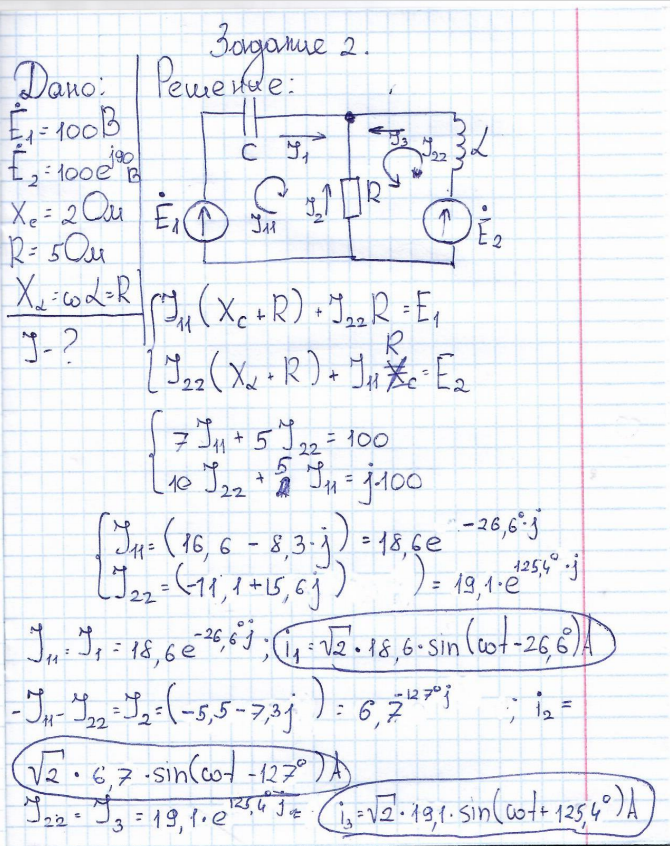 Задание 2.
Дано:
Ė1 = 100В
Ė2 = 100e^j90 В
Xc = 2 Ом
R = 5 Ом
XL = ωL = R
I - ?
Решение:
C
I1
I3
I22
L
Ė1
I11
I2
R
Ė2
I11(Xc + R) + I22R = E1
R
I22(XL + R) + I11 Xc = E2
7I11 + 5I22 = 100
10 I22 + 5 I11 = j·100
I11 = (16,6 - 8,3·j) = 18,6e^-26,6°·j
I22 = (-11,1 + 15,6j) = 19,1·e^125,4°·j
I11 = I1 = 18,6e^-26,6°j; i1 = √2·18,6·sin(ωt - 26,6°)A
-I11 - I22 = I2 = (-5,5 - 7,3j) = 6,7^-127°j ; i2 =
√2·6,7·sin(ωt - 127°)A
I22 = I3 = 19,1·e^125,4°j = i3 = √2·19,1·sin(ωt + 125,4°)A